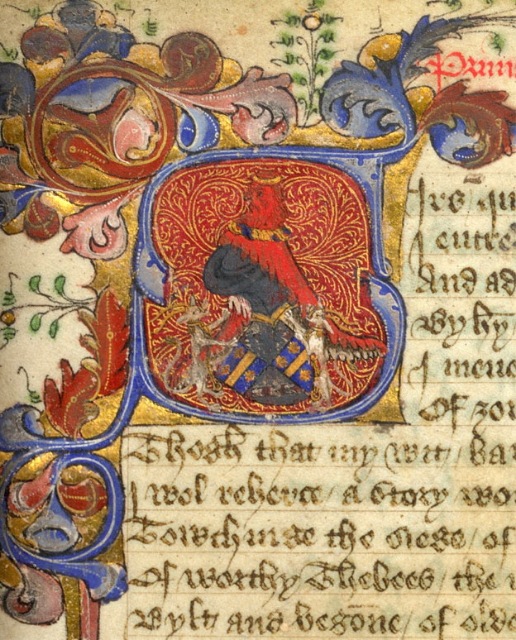 Prim
Irs qu
I entre
And ad
By hy
I mene
Of ȝou
Thogh that my wit / ba
I wol reherce / a story wo
Towchinge the siege / of
Of worthy Thebees / the
Bylt and begōne / of olde